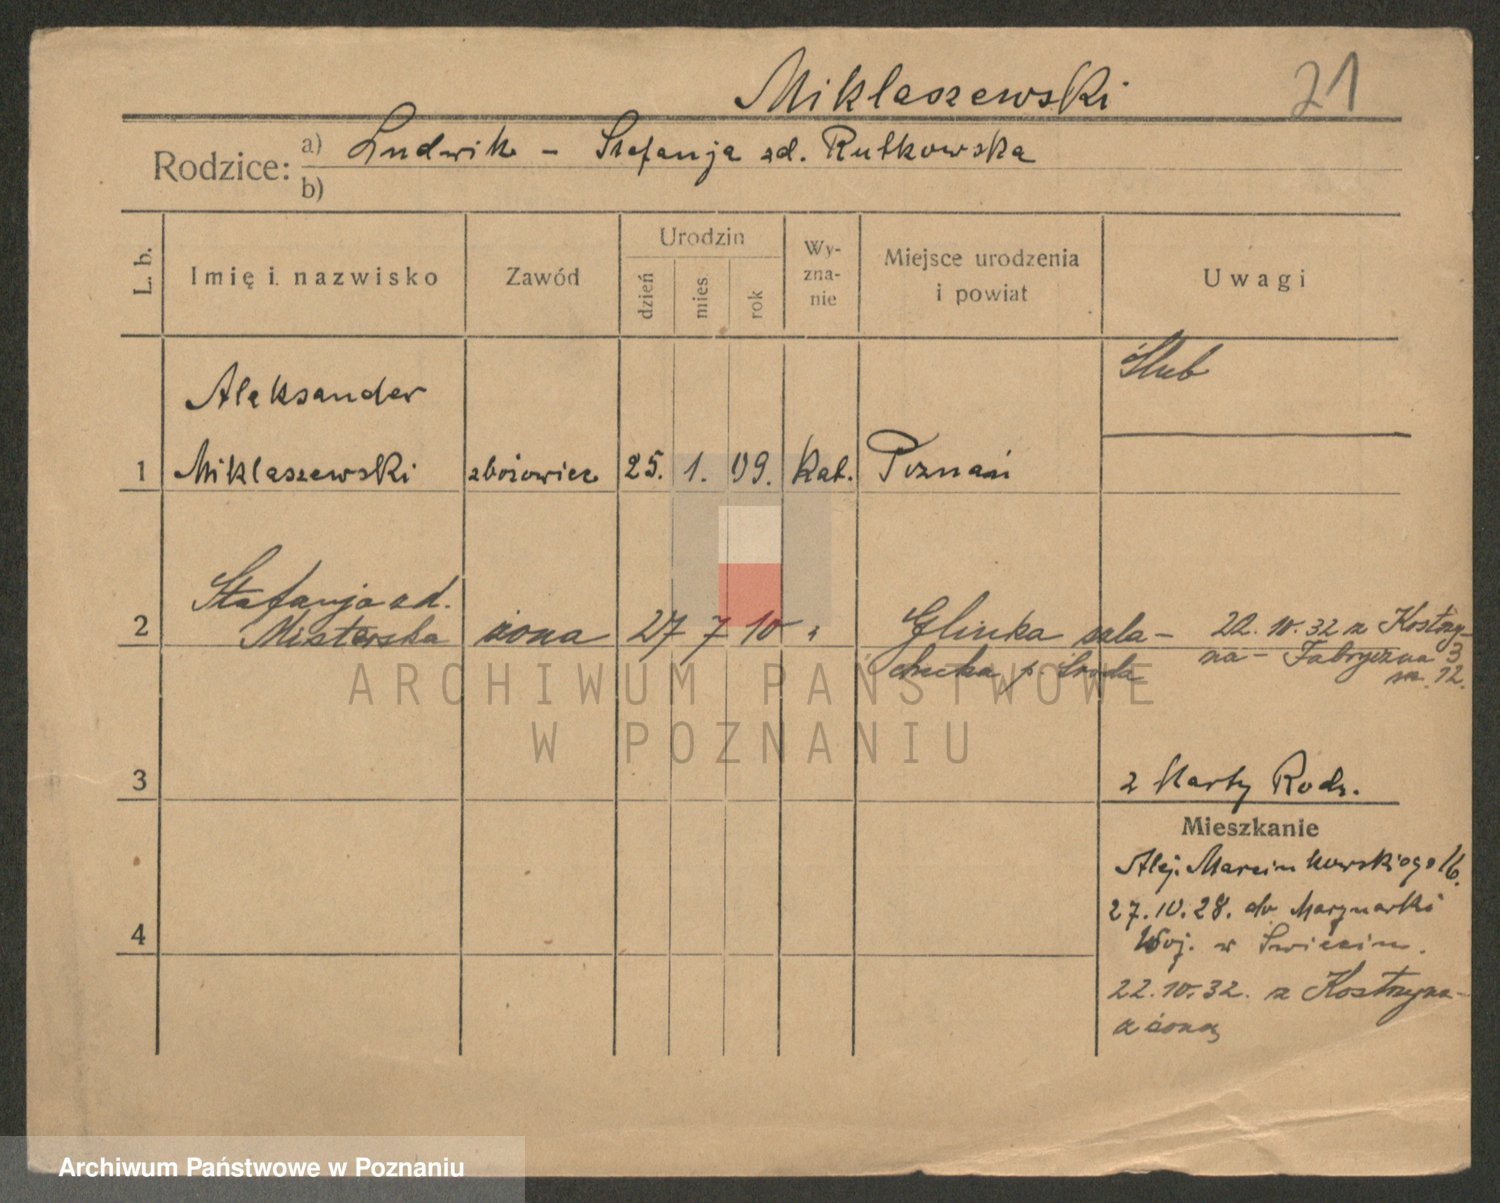 Miklaszewski 21
Rodzice: a) Ludwik – Stefanja zd. Rutkowska
b)
L. b. Imię i nazwisko Zawód Urodzin dzień mies rok Wy-zna-nie Miejsce urodzenia i powiat Uwagi
Ślub
Aleksander
1 Miklaszewski zbożowiec 25. 1. 09. kat. Poznań
Stefanja zd.
2 Misterska żona 27 7 10 " Glinka szla- 22. 10. 32 z Kostrzy-
checka p. Środa na – Fabryczna 3
m. 12.
3 z Karty Rodz.
Mieszkanie
Alej. Marcinkowskiego 16.
27.10.28. do Marynarki
4 Woj. w Świeciu.
22.10.32. z Kostrzyna –
z żoną
ARCHIWUM PAŃSTWOWE
W POZNANIU
Archiwum Państwowe w Poznaniu